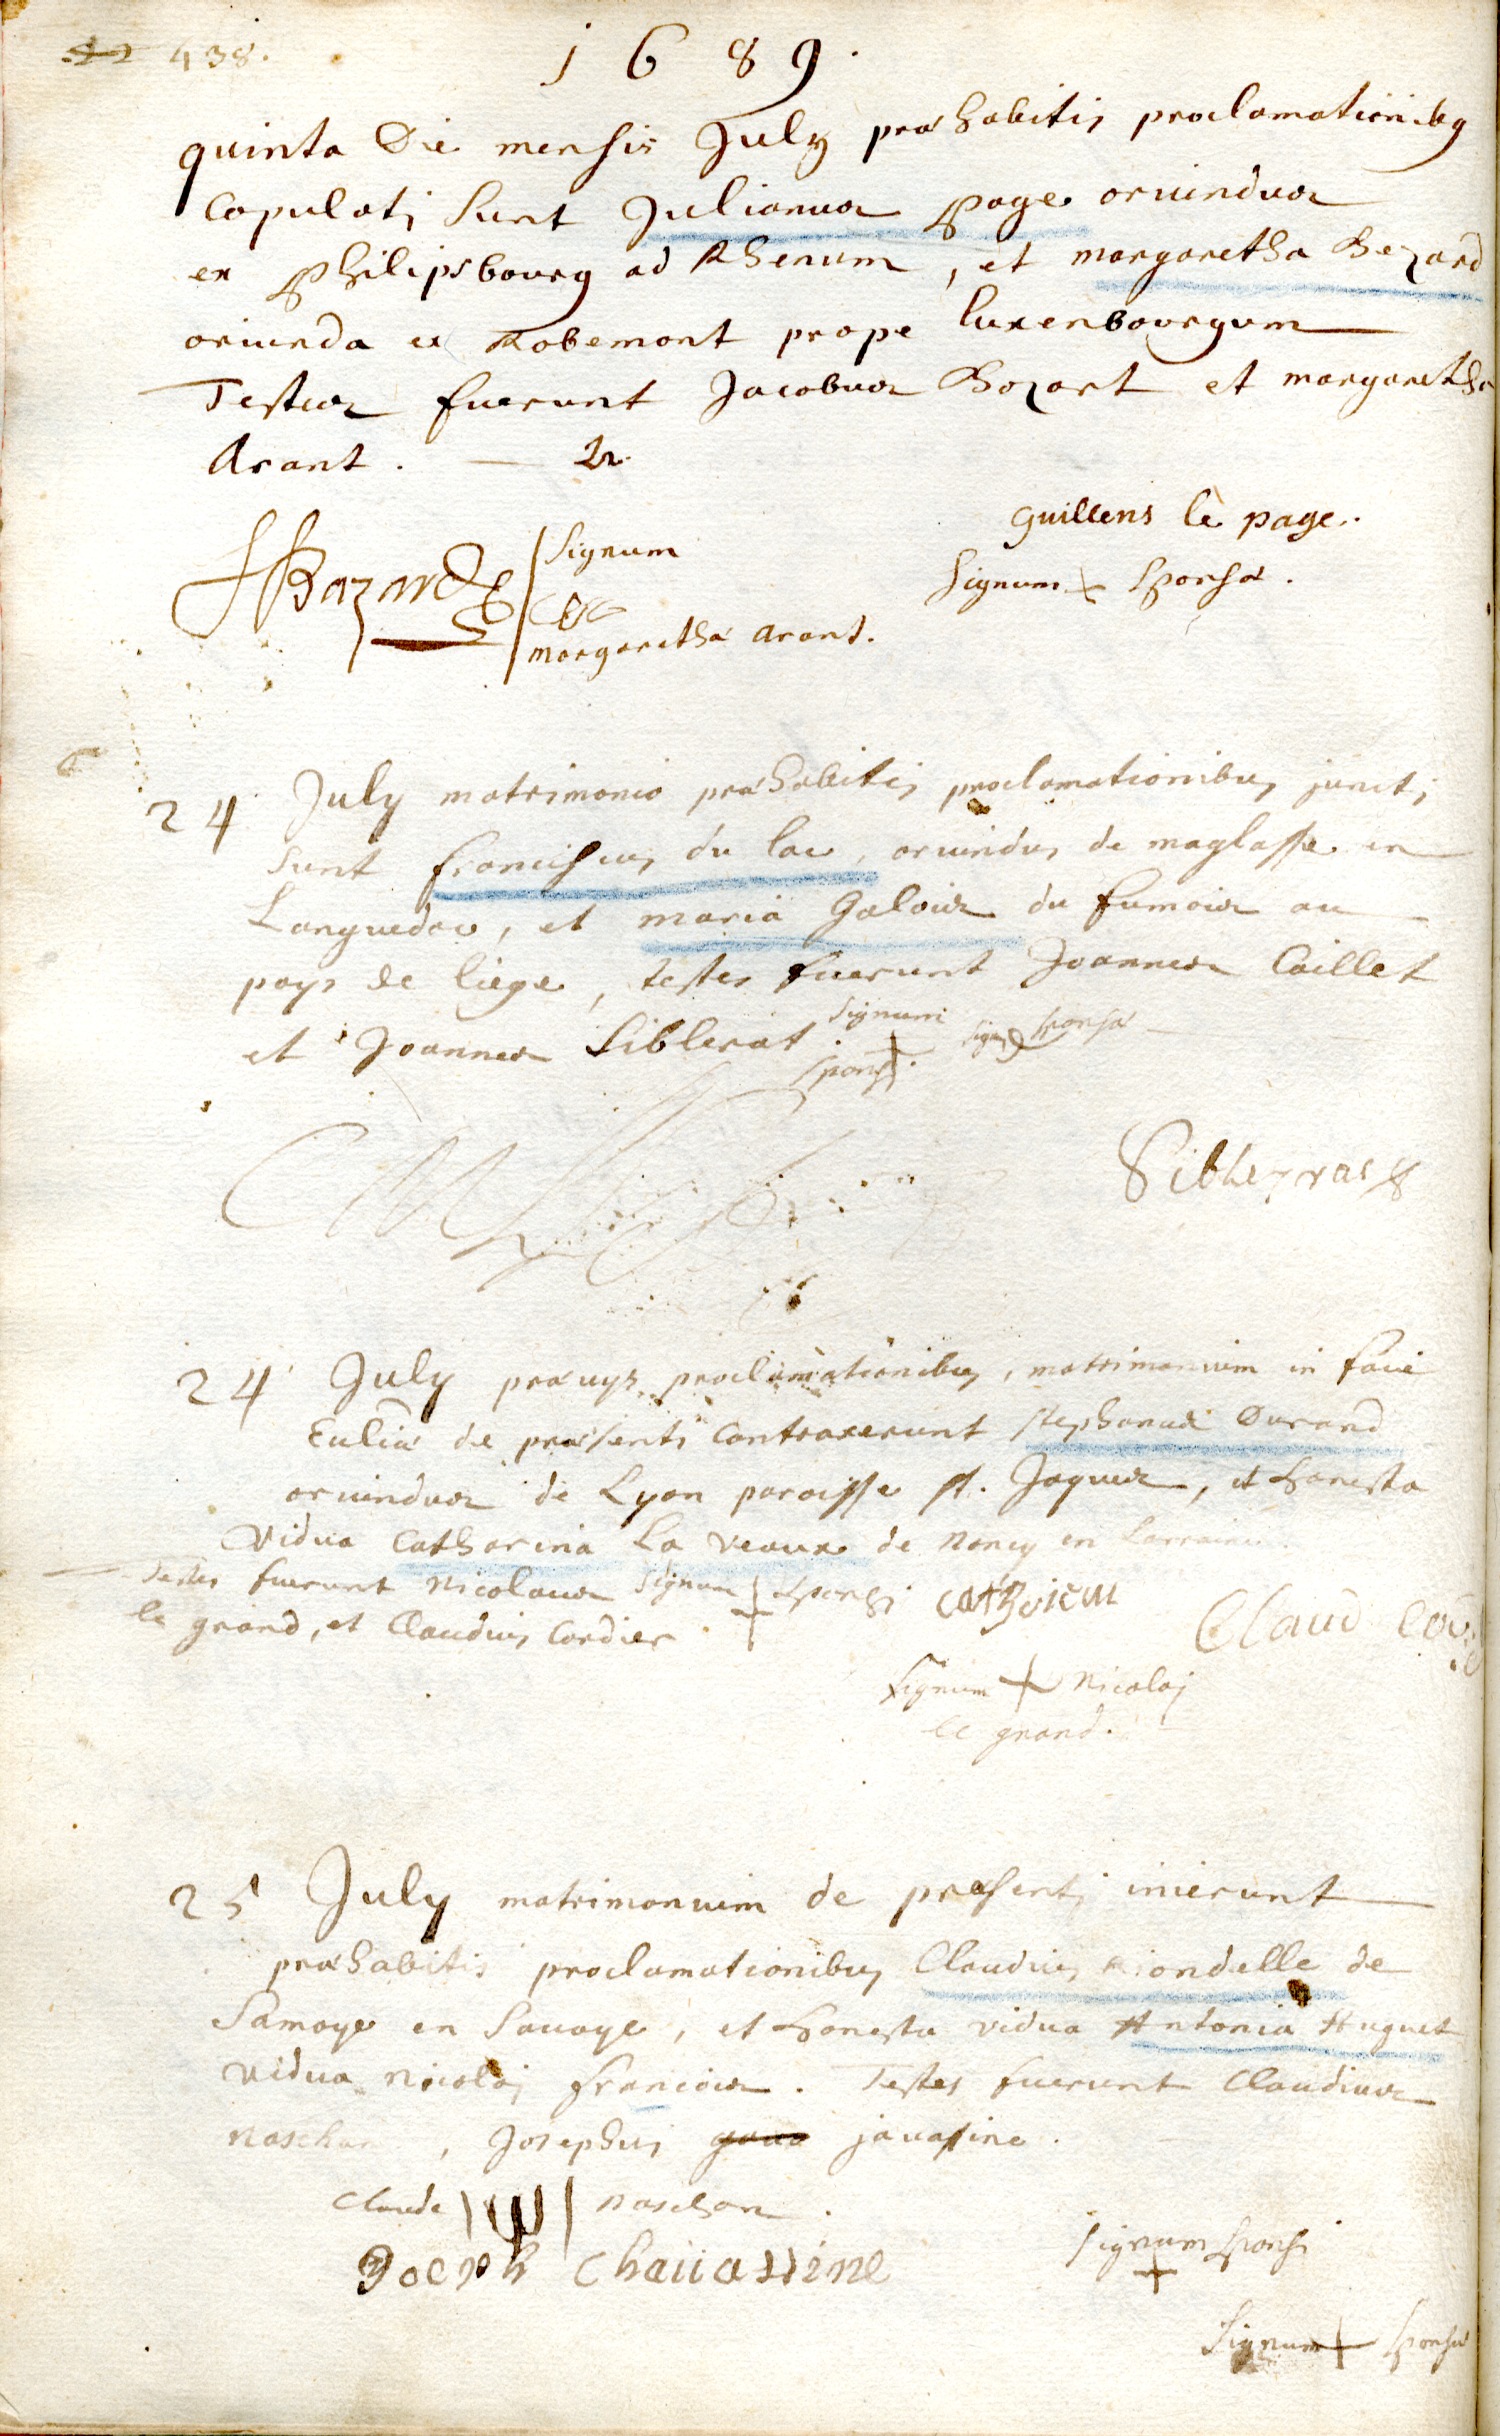 438.
1689.
quinta Die mensis July præhabitis proclamationibg
Copulati Sunt Julianus page oriundus
ex philipsbourg ad Rhenum, et margaretha Bezard
oriunda ex Robemont prope luxenbourgum
Testes fuerunt Jacobus Bozart et margaretha
Arant.
guillens le page.
Signum
Signum + Sponsæ.
JBazard
margaretha Arant.
24 July matrimonio præhabitis proclamationibus juncti
Sunt franciscus du lac, oriundus de maglasse en
Languedoc, et maria Galois du fumois au
pays de liege, testes fuerunt Joannes Caillet
et Joannes Siblerat
Signum
+
Sponsi.
Sign Sponsæ
Sibleyras
24 July præuys proclamationibus, matrimonium in facie
Ecclīæ de præsenti Contraxerunt Stephanus Durand
oriundus de Lyon paroisse st. Jaques, et honesta
Vidua Catharina La veaux de Nancy en Lorraine
Testes fuerunt Nicolaus
le grand, et Claudius Cordier
Signum + Sponsi
Claud
Signum + Nicolaj
le grand.
25 July matrimonium de præsenti inierunt
præhabitis proclamationibus Claudius Riondelle de
Samoye en Sauoye, et honesta vidua Antonia Huguet
vidua Nicolaj francois. Testes fuerunt Claudius
Naschon, Josephus javassine.
Claude Naschon.
Joeph Chauassine
Signum Sponsi
+
Signum + Sponsæ